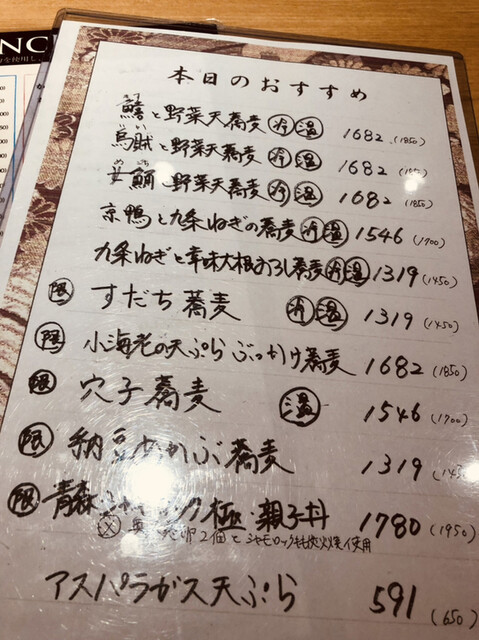 本日のおすすめ
鱚と野菜天蕎麦 冷 温 1682 (1850)
いか
烏賊と野菜天蕎麦 冷 温 1682
めごち
野菜天蕎麦 冷 温 1682 (1850)
京鴨と九条ねぎの蕎麦 冷 温 1546 (1700)
九条ねぎと辛味大根おろし蕎麦 冷 温 1319 (1450)
限 すだち蕎麦 冷 温 1319 (1450)
限 小海老の天ぷら ぶっかけ蕎麦 1682 (1850)
限 穴子蕎麦 温 1546 (1700)
限 納豆めかぶ蕎麦 1319
限 青森 極・親子丼 1780 (1950)
卵2個と シャモロックもも炭火焼使用
アスパラガス天ぷら 591 (650)